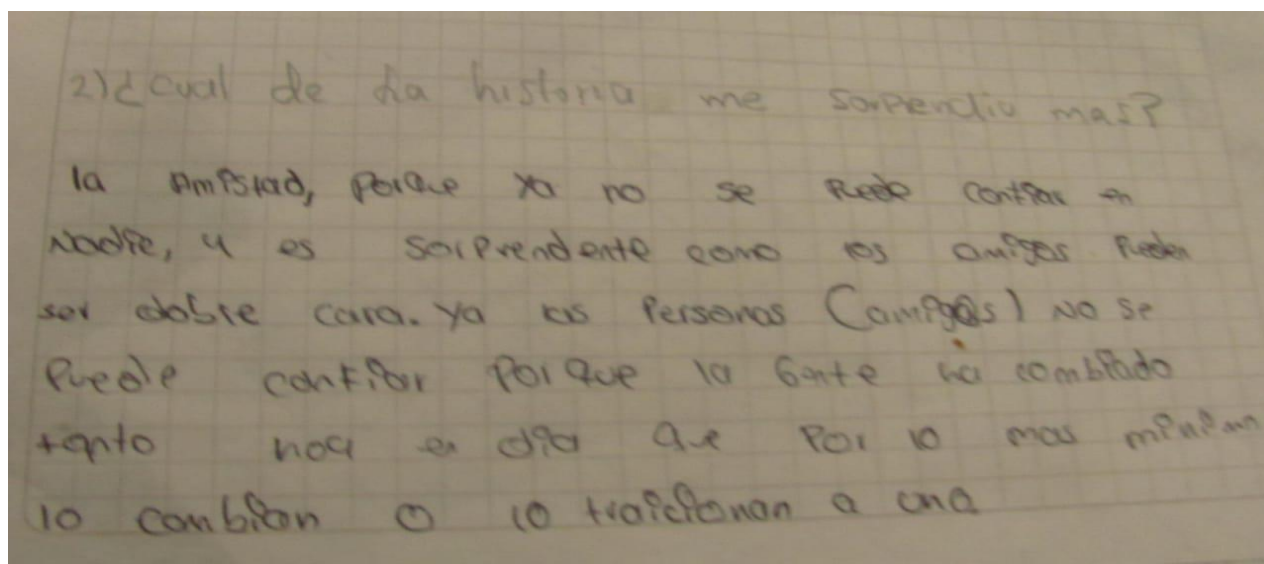 2) ¿cual de la historia me sorpendio mas?
la Amistad, Porque ya no se Puede confiar en
Nadie, y es sorprendente como los amigos Pueden
ser doble cara. ya las Personas (amigos) No se
Puede confiar Porque la Gente ha combiado
tanto hoy en dia que Por lo mas minimo
lo cambian o lo traicionan a una